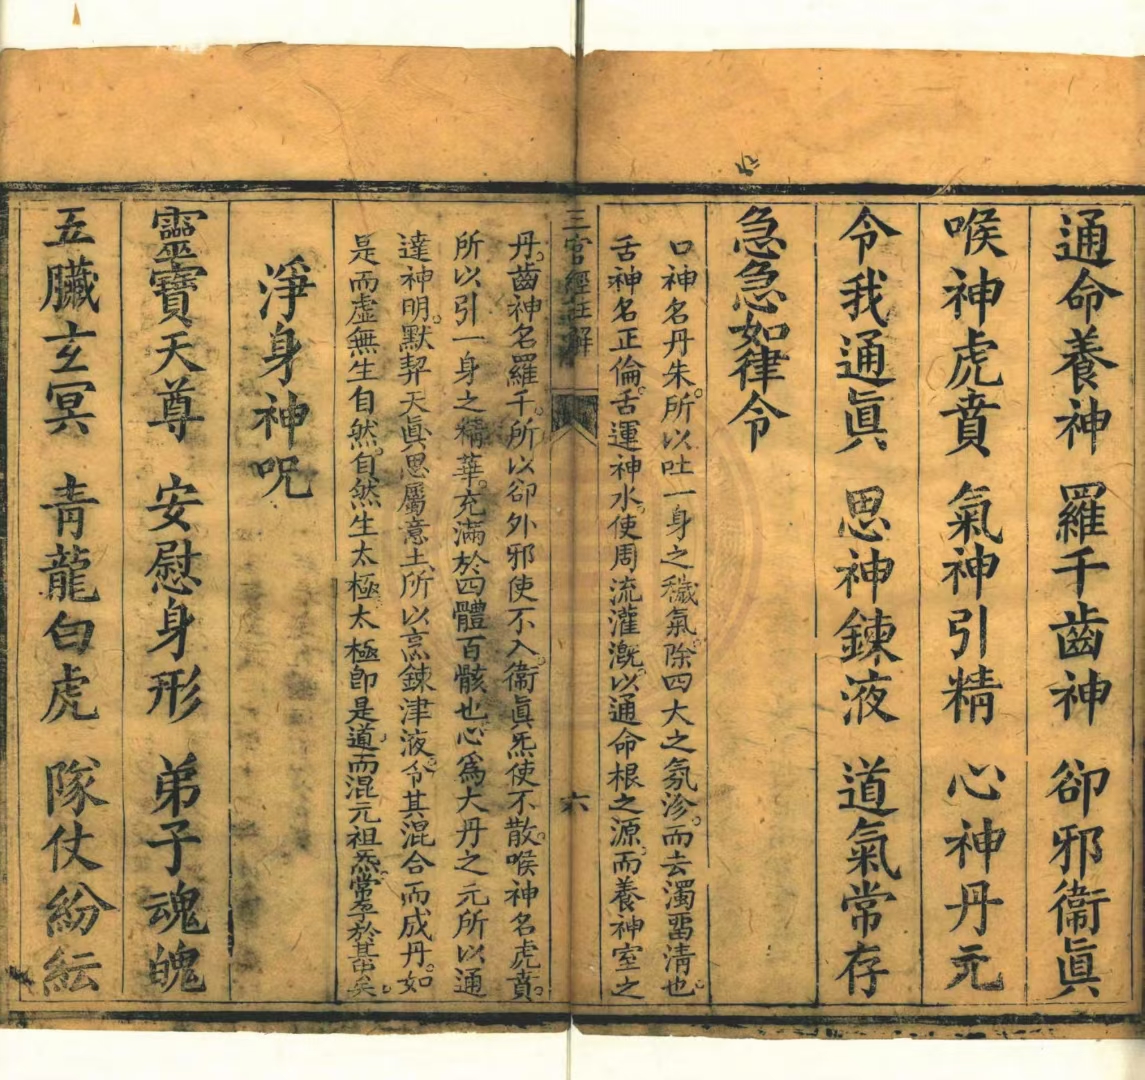 通命養神　羅千齒神　卻邪衞眞
喉神虎賁　氣神引精　心神丹元
令我通眞　思神鍊液　道氣常存
急急如律令
口神名丹朱。所以吐一身之穢氣。除四大之氛沴。而去濁畱清也。
舌神名正倫。舌運神水。使周流灌漑。以通命根之源。而養神室之
三官經註解　六
丹。齒神名羅千。所以卻外邪使不入。衞眞炁使不散。喉神名虎賁。
所以引一身之精華。充滿於四體百骸也。心爲大丹之元。所以通
達神明。默契天眞。思屬意土。所以烹鍊津液。令其混合而成丹。如
是而虛無生自然。自然生太極。太極卽是道。而混元祖炁。常孕於其中矣。
淨身神呪
靈寶天尊　安慰身形　弟子魂魄
五臟玄冥　靑龍白虎　隊仗紛紜